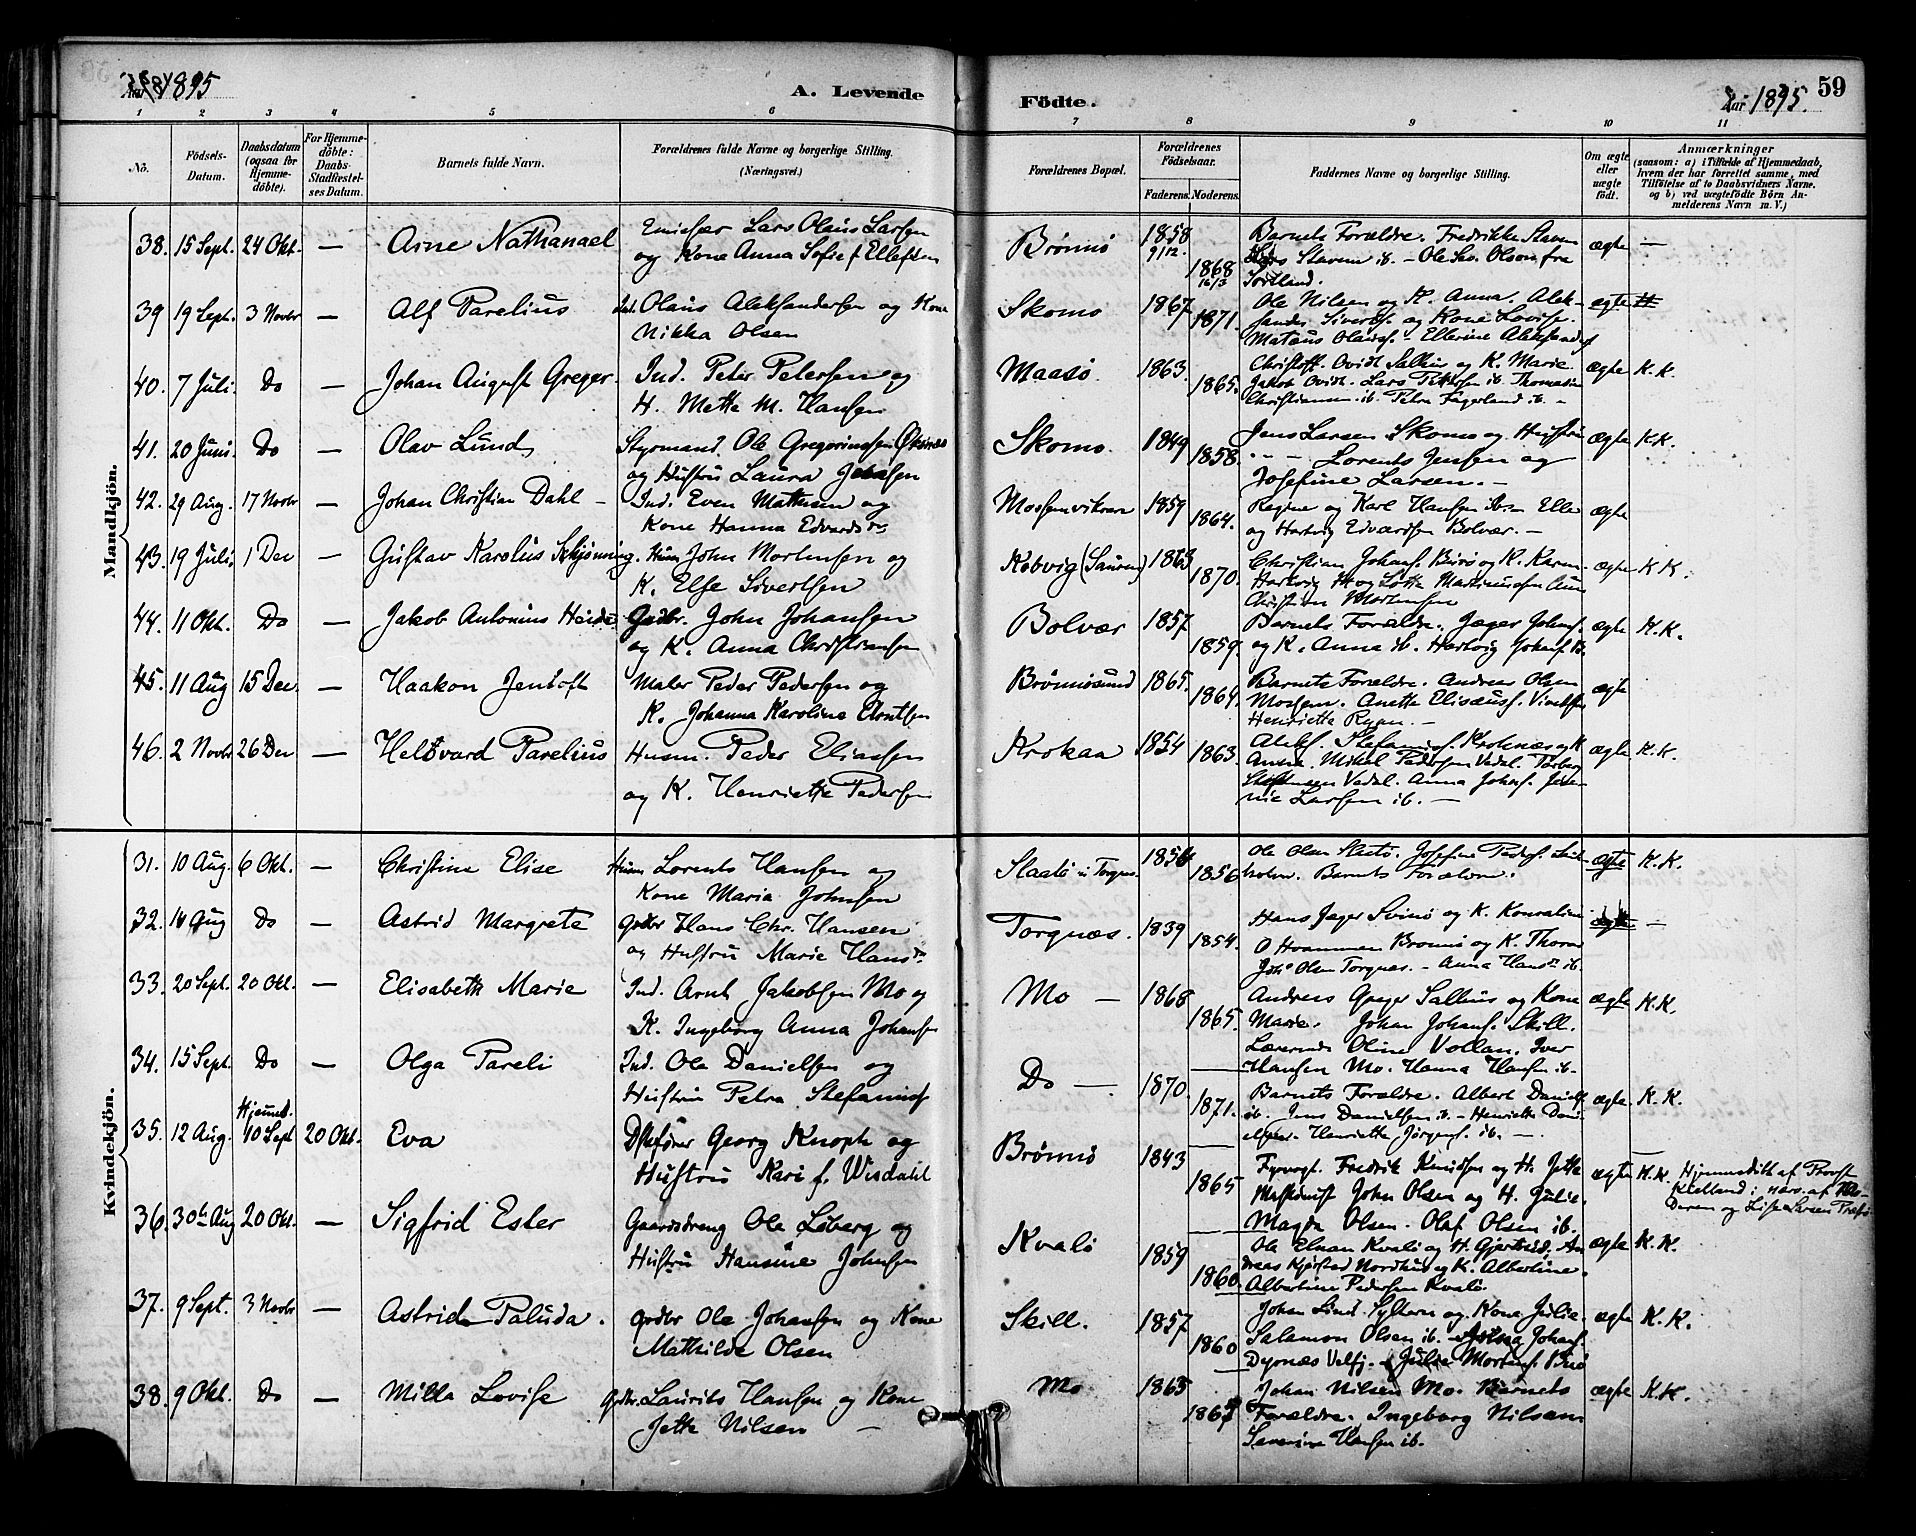 Aar 1895
A. Levende
Födte.
Aar 1895.
59
1 2 3 4 5 6 7 8 9 10 11
No.
Födsels-Datum.
Daabsdatum (ogsaa for Hjemme-döbte).
For Hjemme-döbte: Daabs-Stadfæstelses Datum.
Barnets fulde Navn.
Forældrenes fulde Navne og borgerlige Stilling. (Næringsvei.)
Forældrenes Bopæl.
Forældrenes Födselsaar.
Faderens. Moderens.
Faddernes Navne og borgerlige Stilling.
Om ægte eller uægte födt.
Anmærkninger
(saasom: a) i Tilfælde af Hjemmedaab, hvem der har forrettet samme, med Tilföielse af to Daabsvidners Navne, og b) ved uægtefödte Börn Anmelderens Navn m. V.)
Mandkjön.
38. 15 Sept. 24 Okt. — Arne Nathanael
Lars Olaus Larsen
og Kone Anna Sofie f. Ellefsen
Brønnø 1858 9/12. 1868 16/3
Barnets Forældre. Fredrikke Staven
Staven ib. — Ole Olsen fra
Sortland.
ægte —
39 19 Sept. 3 Novbr — Alf Parelius
Ind. Olaus Aleksandersen og Kone
Nikka Olsen
Skomo 1867 1871.
Ole Nilsen og K. Anna. Alek-
sander Sivertsf. og Kone Lovise.
Mataus Olausf. — Ellerine Aleksandsf
ægte
40. 7 Juli. Do — Johan August Greger.
Ind. Peter Petersen og
H. Mette M. Hansen
Maasø. 1863. 1865.
Christoff. Ovidt Salhus og K. Marie
Jakob Ovidt. Lars Pettersen ib. Thomasine
Christiansen ib. Petra Fagerland ib —
ægte K.K.
41. 20 Juni. Do — Olav Lund
Styrmand Ole Gregoriussen Øksnes
og Hustru Laura Jensen
Skomo. 1849 1858.
Jens Larsen Skomo og Hustru
— Lorents Jensen og
Josefine Larsen. —
ægte K.K.
42. 29 Aug. 17 Novbr — Johan Christian Dahl —
Ind. Even Mathisen og
Kone Hanna Edvardsdr.
Mossemvikvan 1859 1864.
Regine og Karl Hansen ibm Elle
og Hartvig Edvardsen Bolvær. —
ægte
43. 19 Juli. 1 Dec — Gustav Karolius Schjønning.
Husm John Mortensen og
K. Else Sivertsen
Kobvig (Sauren) 1863 1870.
Christian Johansf. Burø og K. Karen
Hartvig M og Lotte Martinussen
Christian Mortensen
ægte K K.
44. 11 Okt. Do — Jakob Antonius Heide
Gaardbr. John Johansen
og K. Anna Christiansen
Bolvær 1857 1859.
Barnets Forældre. Jæger Johansf.
og K. Anna ib. Hartvig Johansf. ib.
ægte K.K.
45. 11 Aug 15 Dec. — Haakon Jentoft
Maler Peder Pedersen og
K. Johanna Karoline Arntsen
Brønnøsund 1865. 1864.
Barnets Forældre. Andreas Olsen
Mosem. Anette Elisæusf.
Henriette Ryan. —
ægte
46. 2 Novbr 26 Dec — Heltvard Parelius
Husm. Peder Eliassen
og K. Henriette Pedersen
Krokaa 1854 1863.
Aleks. Stefanusf. Kroknæs og K
Anna. Mikal Pedersen Vedal. Torberg
Steffensen Vedal. Anna Johansf. Jen-
nie Larsen ib. —
ægte K.K.
Kvindekjön.
31. 10 Aug. 6 Okt. — Christine Elise
Husm Lorents Hansen og
Kone Maria Johnsen
Slaatø i Torgnes. 1856 1856
Ole Olsen Slaatø. Josefine Pedersf.
holm. Barnets Forældre.
ægte K.K.
32. 14 Aug Do — Astrid Margrete
Grdbr Hans Chr. Hansen
og Hustru Marie Hansdr.
Torgnæs. 1839 1854.
Hans Jæger Svinø og K. Konraline
O Hvammen Brønnø og K. Thora
Joh. Olsen Torgnæs. — Anna Hansdr ib.
ægte —
33. 20 Sept. 20 Okt. — Elisabeth Marie
Ind. Arnt Jakobsen Mo og
K. Ingeborg Anna Johansen
Mo — 1868 1865.
Andreas Greger Salhus og Kone
Marie. Johan Johansf. Skill.
Lærerinde Oline Vollan. Iver
Hansen Mo. Hanna Hansen ib.
ægte K.K.
34. 15 Sept. Do — Olga Pareli
Ind. Ole Danielsen og
Hustru Petra Stefanusf
Do — 1870. 1871.
Barnets Forældre. Albert Danielsf
ib. Jens Danielsen ib. — Henrikke Dani-
elsen. Henriette Jørgensf. ib. —
ægte K.K.
35. 12 Aug. Hjemmd. 10 Sept 20 Okt. Eva
Georg Knoph og
Hustru Kari f. Wisdahl
Brønnø 1843 1865
Fyrvogt. Fredrik Knudsen og H. Jette
Maskinist John Olsen og H. Julie
Magda Olsen. Olaf Olsen ib.
ægte K.K. Hjemmedøbt af Provst
Kielland; nærv. af Mo-
deren og Lise Larsen
36. 30te Aug 20 Okt. — Sigfrid Ester
Gaardsdreng Ole Løberg og
Hustru Hansine Johnsen
Kvalø 1859 1860.
Ole Elnan Kvalø og H. Gjertrud. An-
dreas Kjørstad Nordhus og K. Albertine.
Albertine Pedersen Kvalø.
ægte K.K.
37. 9 Sept. 3 Novbr — Astrid Paluda.
Grdbr Ole Johansen og Kone
Mathilde Olsen
Skill. 1857 1860
Johan Lind. Syltern og Kone Julie
Salamon Olsen ib. — Johansf.
Dyrnæs Velfj. — Julie Mortensf. Burø
ægte K.K.
38. 9 Okt. Do — Milla Lovise
Grdbr. Laurits Hansen og Kone
Jette Nilsen —
Mo 1865 1867
Johan Nilsen Mo. Barnets
Forældre. Ingeborg Nilsen
Severine Hansen ib.
ægte K.K.